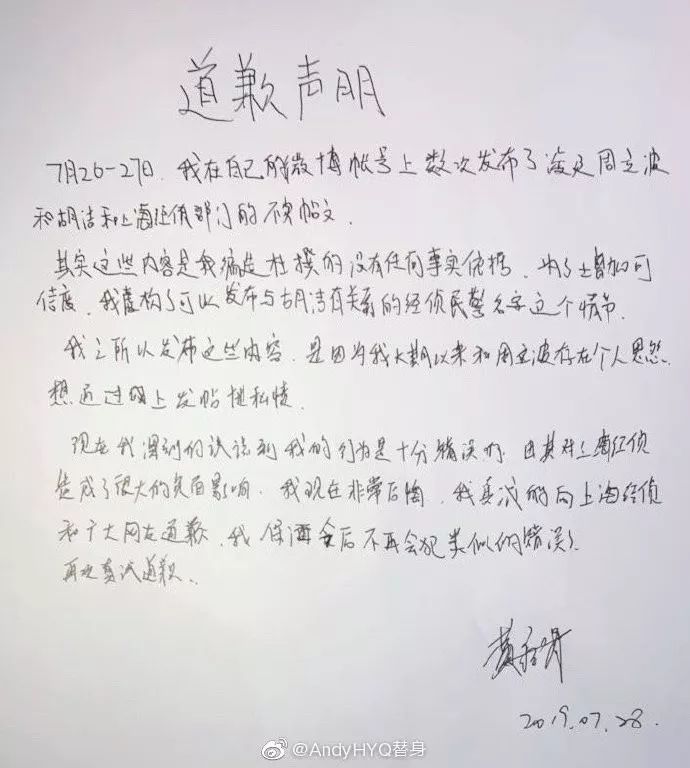 道歉声明
7月26-27日，我在自己的微博帐号上数次发布了涉及周立波
和胡洁和上海经侦部门的不实帖文.
其实这些内容是我编造杜撰的没有任何事实依据，为了增加可
信度，我虚构了可以发布与胡洁有关系的经侦民警名字这个情节.
我之所以发布这些内容，是因为我长期以来和周立波存在个人恩怨.
想通过网上发帖泄私愤.
现在我深刻的认识到我的行为是十分错误的，尤其对上海经侦
造成了很大的负面影响，我现在非常后悔，我真诚的向上海经侦
和广大网友道歉，我保证今后不再会犯类似的错误.
再次真诚道歉.
2019.07.28.
@AndyHYQ替身